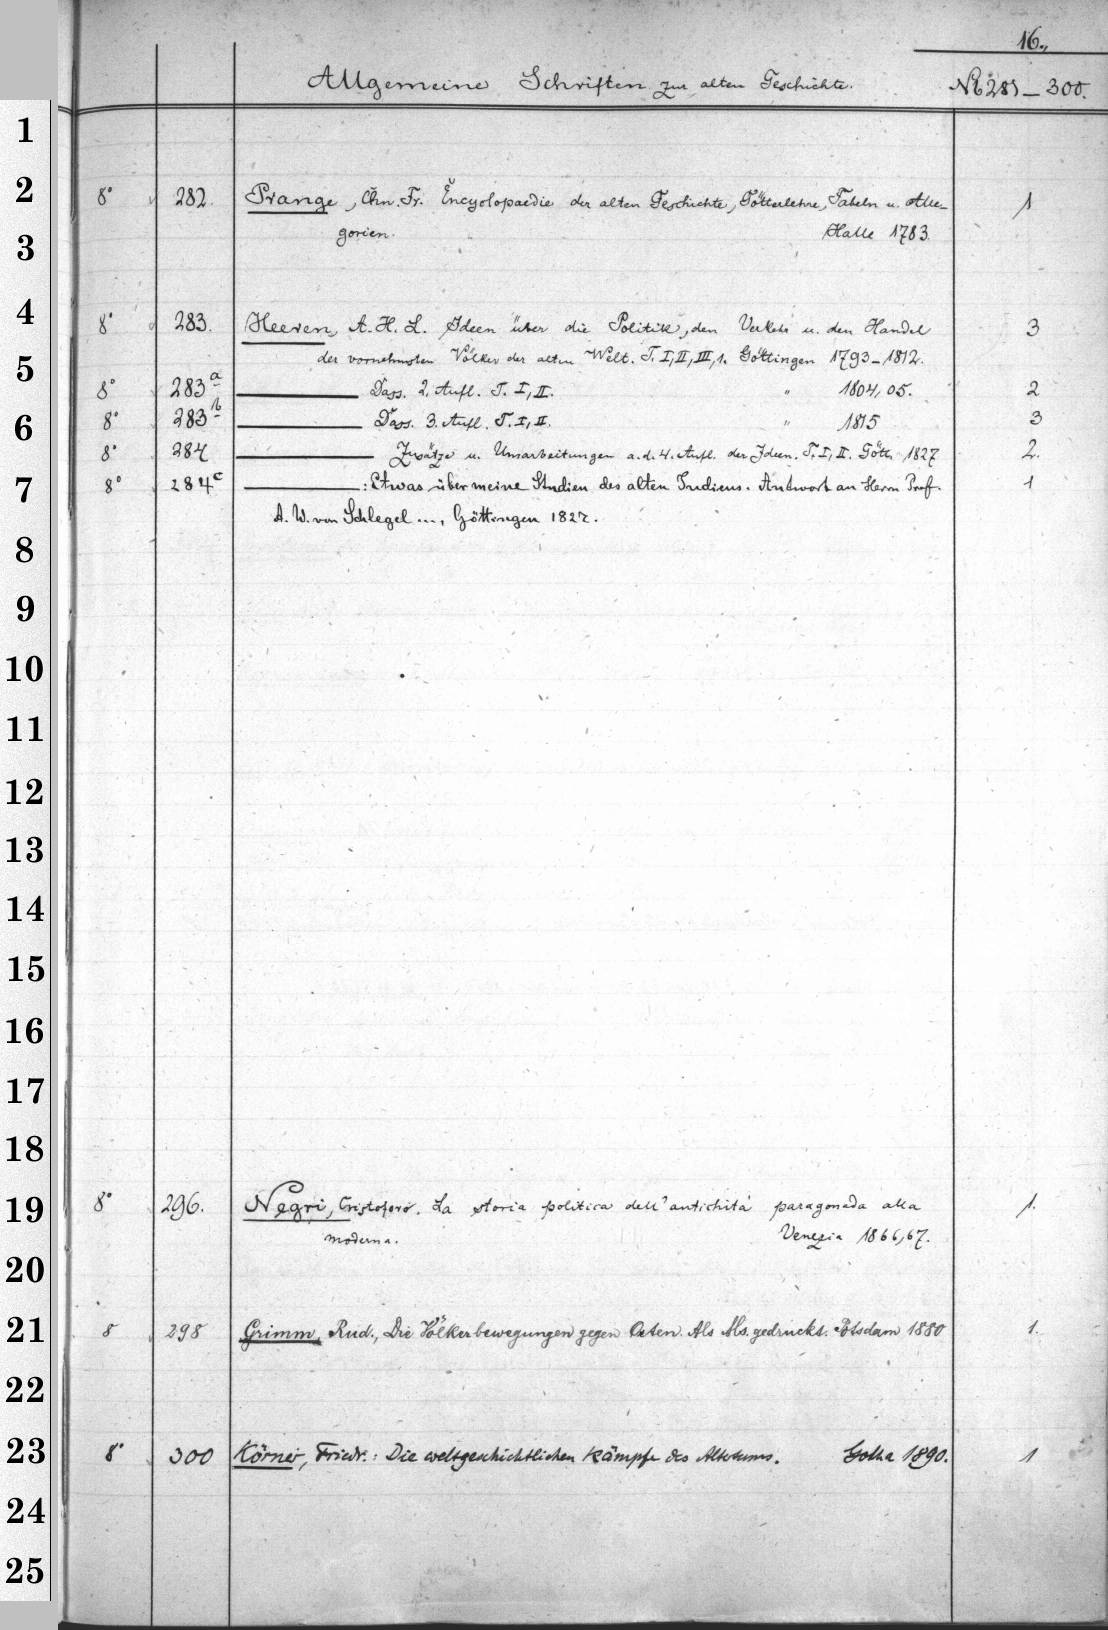 16.,
Allgemeine Schriften zur alten Geschichte. № 281–300.
1
2 8° 282. Prange, Chn. Fr. Encyclopaedie der alten Geschichte, Götterlehre, Fabeln u. Alle- 1
3 gorien. Halle 1783.
4 8° 283. Heeren, A. H. L. Ideen über die Politik, den Verkehr u. den Handel 3
der vornehmsten Völker der alten Welt. T. I, II, III, 1. Göttingen 1793–1812.
5 8° 283a ——— Dass. 2. Aufl. T. I, II. " 1804, 05. 2
6 8° 283b ——— Dass. 3. Aufl. T. I, II. " 1815 3
8° 284 ——— Zusätze u. Umarbeitungen a. d. 4. Aufl. der Ideen. T. I, II. Gött. 1827 2.
7 8° 284c ———: Etwas über meine Studien des alten Indiens. Antwort an Herrn Prof. 1
A. W. von Schlegel ..., Göttingen 1827.
8
9
10
11
12
13
14
15
16
17
18
19 8° 296. Negri, Cristoforo. La storia politica dell' antichità paragonada alla 1.
moderna. Venezia 1866, 67.
20
21 8 298 Grimm, Rud., Die Völkerbewegungen gegen Osten. Als Ms. gedruckt. Potsdam 1880 1.
22
23 8° 300 Körner, Friedr.: Die weltgeschichtlichen Kämpfe des Altertums. Gotha 1890. 1
24
25